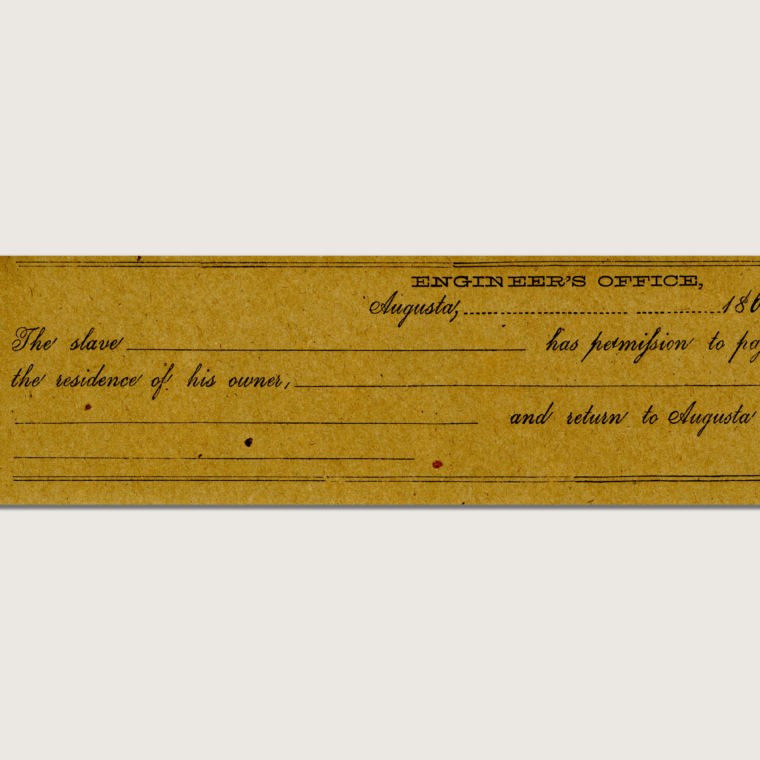 ENGINEER'S OFFICE,
Augusta, 186
The slave has permiſsion to pa
the residence of his owner,
and return to Augusta